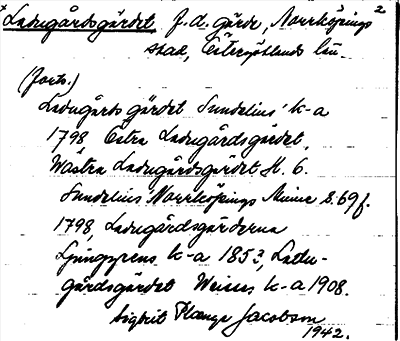 x Ladugårdsgärdet f.d. gärde, Norrköpings 2
stad, Östergötlands län.
(forts.)
Ladugårds gärdet Sundelius' k-a
1798, Östra Ladugårdsgärdet,
Wästra Ladugårdsgärdet H. 6.
Sundelius Norrköpings Minne s. 69 f.
1798, Ladugårdsgärderna
Ljunggrens k-a 1853, Ladu-
gårdsgärdet Weisers k-a 1908.
Sigbrit Plænge Jacobson
1942.